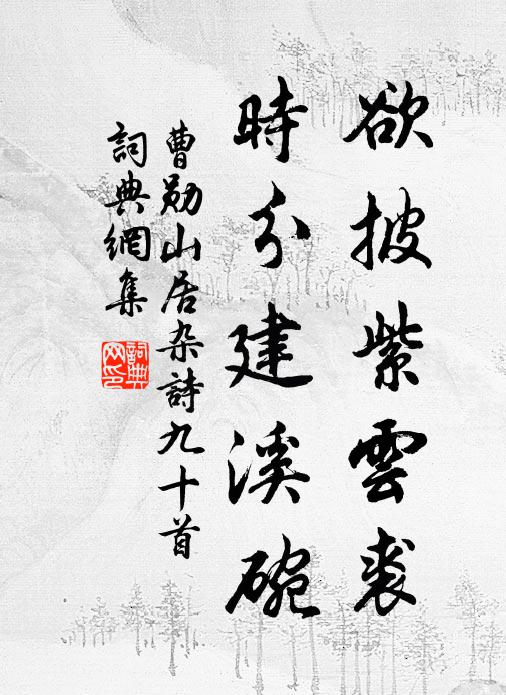 欲披紫雲裘
時分建溪碗
曹勛山居杂詩九十首
詞典網集
詞典網印